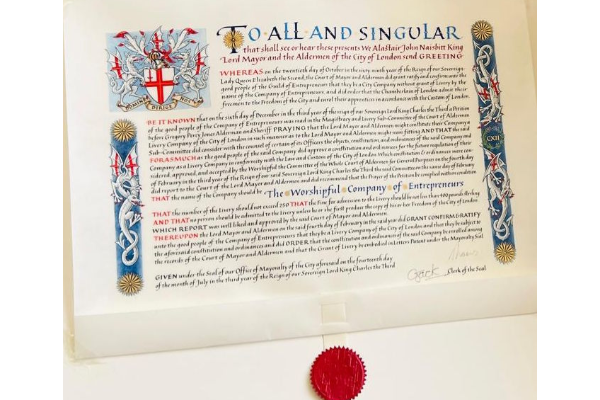 DOMINE DIRIGE NOS
TO ALL AND SINGULAR
that shall see or hear these presents We Alastair John Naisbitt King
Lord Mayor and the Aldermen of the City of London send GREETING
WHEREAS on the twentieth day of October in the sixty ninth year of the Reign of our Sovereign
Lady Queen Elizabeth the Second, the Court of Mayor and Aldermen did grant ratify and confirm unto the
good people of the Guild of Entrepreneurs that they be a City Company without grant of Livery by the
name of the Company of Entrepreneurs, and did order that the Chamberlain of London admit their
freemen to the Freedom of the City and enrol their apprentices in accordance with the Custom of London.
BE IT KNOWN that on the sixth day of December in the third year of the reign of our Sovereign Lord King Charles the Third a Petition
of the good people of the Company of Entrepreneurs was read in the Magistracy and Livery Sub-Committee of the Court of Aldermen
before Gregory Percy Jones Alderman and Sheriff PRAYING that the Lord Mayor and Aldermen might constitute their Company a
Livery Company of the City of London in such manner as to the Lord Mayor and Aldermen might seem fitting AND THAT the said
Sub-Committee did consider with the counsel of certain of its Officers the objects, constitution, and ordinances of the said Company and
FORASMUCH as the good people of the said Company did approve a constitution and ordinances for the future regulation of their
Company as a Livery Company in conformity with the Law and Customs of the City of London Which
approved, and accepted by the Worshipful the Committee of the Whole Court of Aldermen for General Purposes on the fourth day
of February in the third year of the Reign of our said Sovereign Lord King Charles the Third the said
did report to the Court of the Lord Mayor and Aldermen and did recommend that the Prayer of the Petition be complied with on condition
THAT the name of the Company should be The Worshipful Company of Entrepreneurs
THAT the number of the Livery should not exceed 250 THAT the Fine for admission to the Livery should be not less than
AND THAT no person should be admitted to the Livery unless he or she first produce the copy of his or her Freedom of the City of London
WHICH REPORT was well liked and approved by the said Court of Mayor and Aldermen.
THEREUPON the Lord Mayor and Aldermen on the said fourth day of February in the said year did GRANT CONFIRM & RATIFY
unto the good people of the Company of Entrepreneurs that they be a Livery Company of the City of London and that they be subject to
the aforesaid constitution and ordinances and did ORDER that the constitution and ordinances of the said Company be enrolled among
the records of the Court of Mayor and Aldermen and that the Grant of Livery be embodied in Letters Patent under the Mayoralty Seal
GIVEN under the Seal of our Office of Mayoralty of the City aforesaid on the fourteenth day
of the month of July in the third year of the Reign of our Sovereign Lord King Charles the Third
Clerk of the Seal